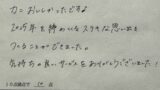 カニおいしかったですよ
2025年を締めいいステキな思い出を
つくることができました。
気持ちの良いサービスをありがとうございました!